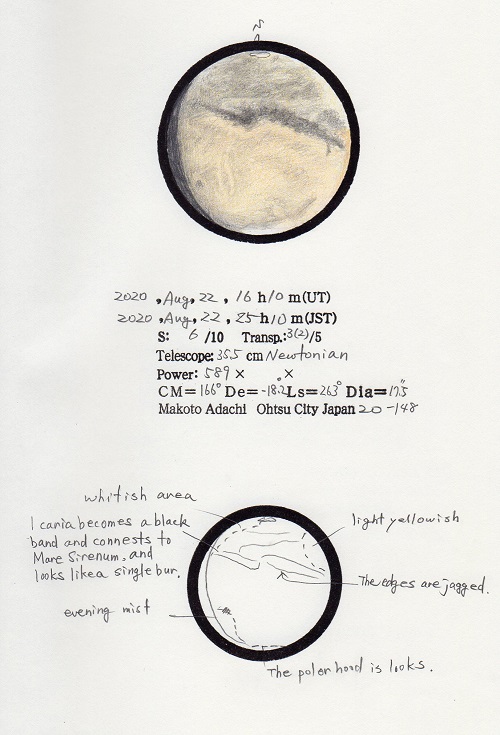 S
2020 , Aug, 22 , 16 h 10 m(UT)
2020 , Aug, 22 , 25 h 10 m(JST)
S: 6 /10 Transp.: 3(2)/5
Telescope: 35.5 cm Newtonian
Power: 589 × ×
CM= 166° De= -18.2° Ls= 263° Dia= 17.5"
Makoto Adachi Ohtsu City Japan 20 -148
whitish area
Icaria becomes a black
band and connests to
Mare Sirenum, and
looks like a single bur.
light yellowish
The edges are jagged.
evening mist
The poler hood is looks.